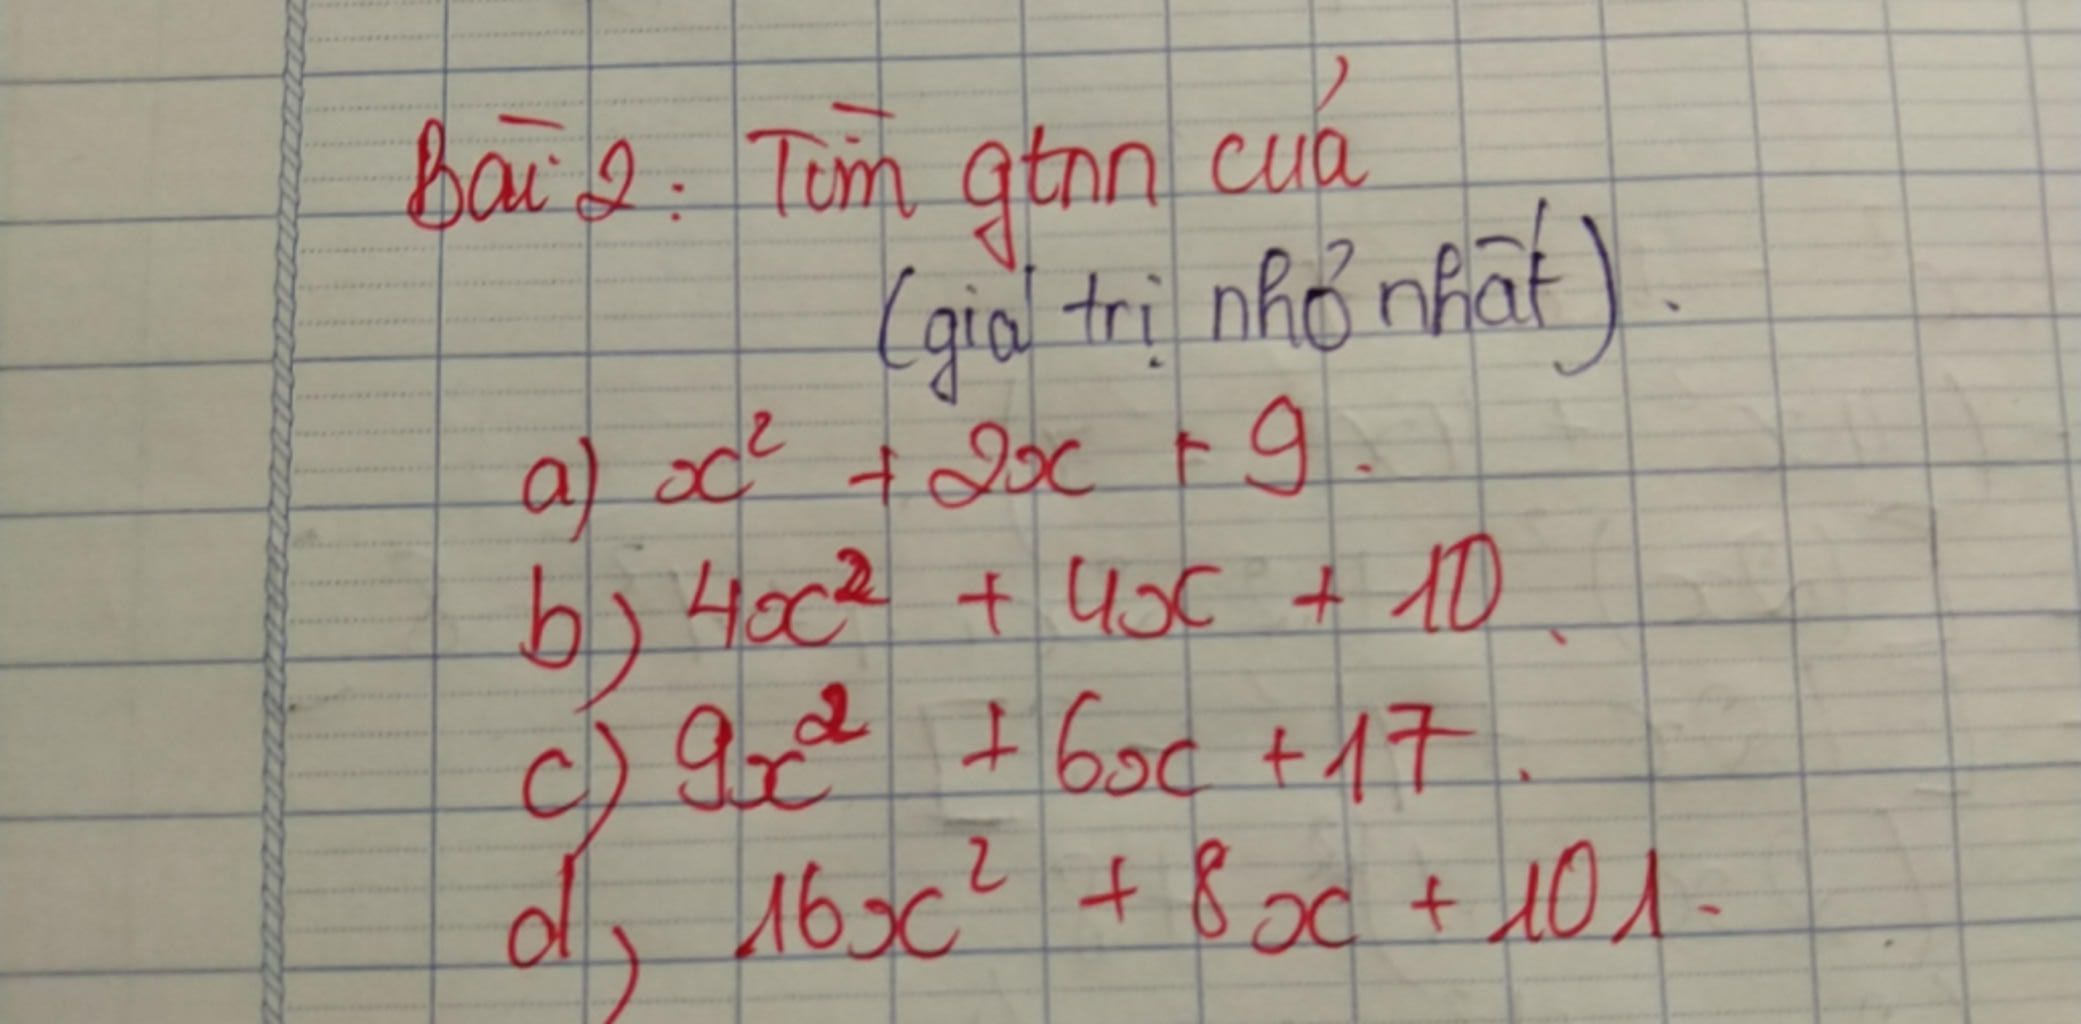 Bài 2: Tìm gtnn của
(giá trị nhỏ nhất).
a) x² + 2x + 9.
b) 4x² + 4x + 10.
c) 9x² + 6x + 17.
d) 16x² + 8x + 101.